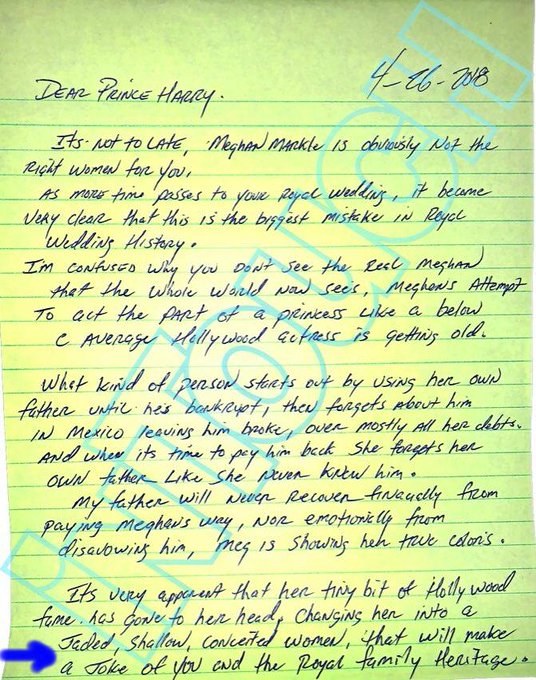 4-26-2018
DEAR PRINCE HARRY.
Its not to LATE, Meghan Markle is obviously Not the
Right Women for you,
As more time passes to your Royal Wedding, it became
very clear that this is the biggest mistake in Royal
Wedding History.
I'm confused why you Don't see the Real Meghan
that the whole world Now sees, Meghans Attempt
To act the part of a princess Like a below
C Average Hollywood actress is getting old.
What kind of person starts out by using her own
father until he's bankrupt, then forgets about him
in Mexico leaving him broke, over mostly all her debts.
And when its time to pay him back She forgets her
own father Like She Never Knew him.
My father will Never Recover finacially from
paying Meghans way, Nor emotionally from
disavowing him, Meg is showing her true colors.
It's very apparent that her tiny bit of Hollywood
fame has gone to her head, Changing her into a
Jaded, Shallow, Conceited Women, that will make
a Joke of you and the Royal family Heritage.
INTOUCH